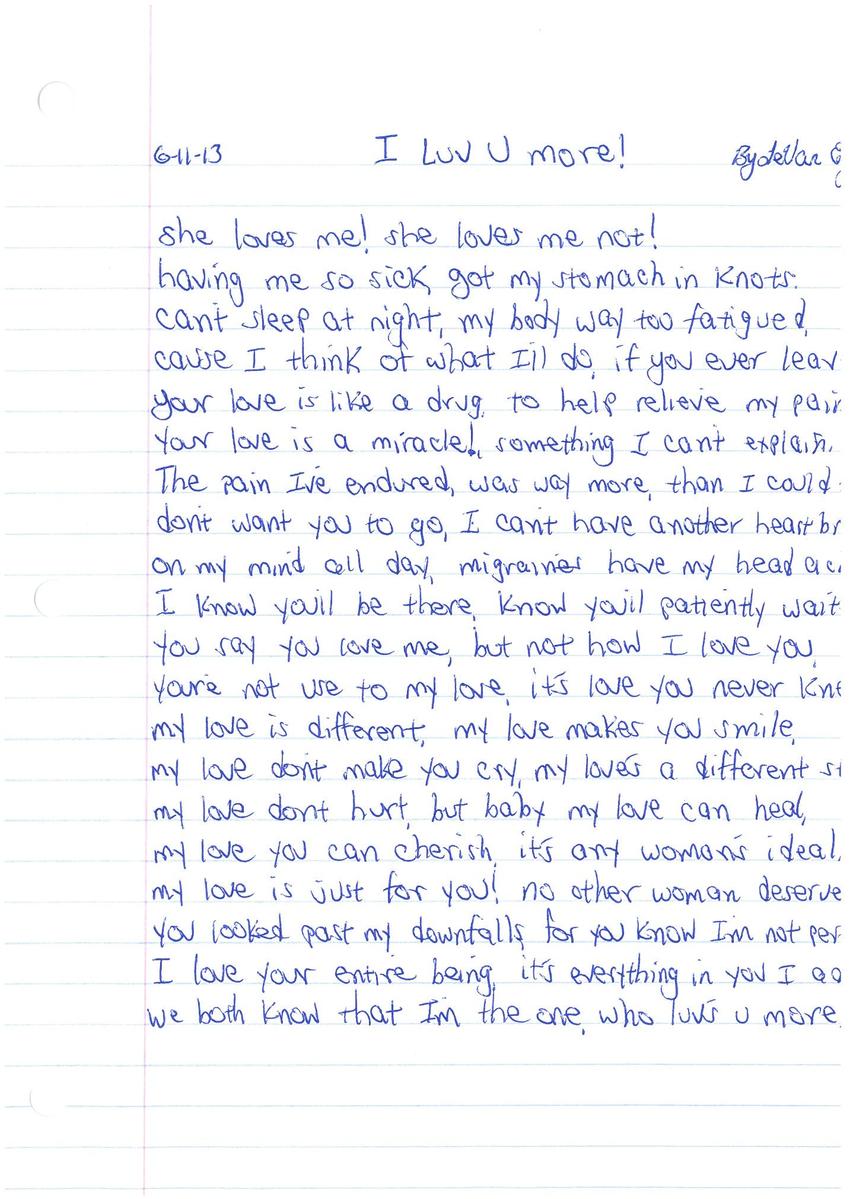 6-11-13 I LUV U more! By deVan
she loves me! she loves me not!
having me so sick, got my stomach in knots.
can't sleep at night, my body way too fatigued,
cause I think of what I'll do, if you ever leav
your love is like a drug, to help relieve my pain
Your love is a miracle!, something I can't explain.
The pain I've endured, was way more, than I could
don't want you to go, I can't have another heartbr
on my mind all day, migraines have my head aci
I know you'll be there, know you'll patiently wait
You say you love me, but not how I love you,
you're not use to my love, it's love you never kne
my love is different, my love makes you smile,
my love don't make you cry, my love's a different st
my love don't hurt, but baby my love can heal,
my love you can cherish, it's any woman's ideal,
my love is just for you! no other woman deserve
you looked past my downfalls, for you know I'm not per
I love your entire being, it's everything in you I ado
we both know that I'm the one, who luv's u more.